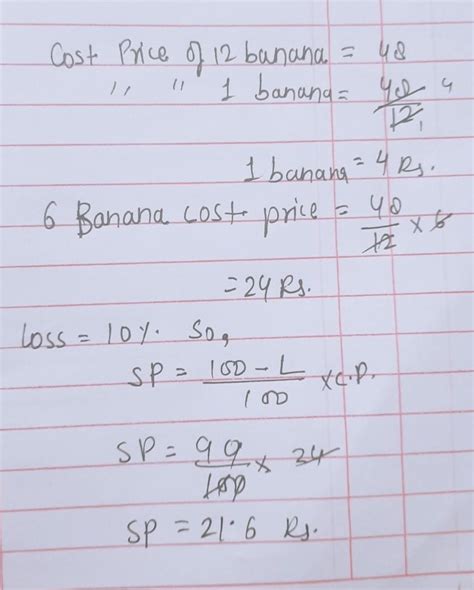 Cost Price of 12 banana = 48
,, ,, 1 banana = 48/12 4 1
1 banana = 4 Rs.
6 Banana cost price = 48/12 × 6
= 24 Rs.
Loss = 10%. So,
SP = 100 - L/100 × C.P.
SP = 90/100 × 24
SP = 21.6 Rs.